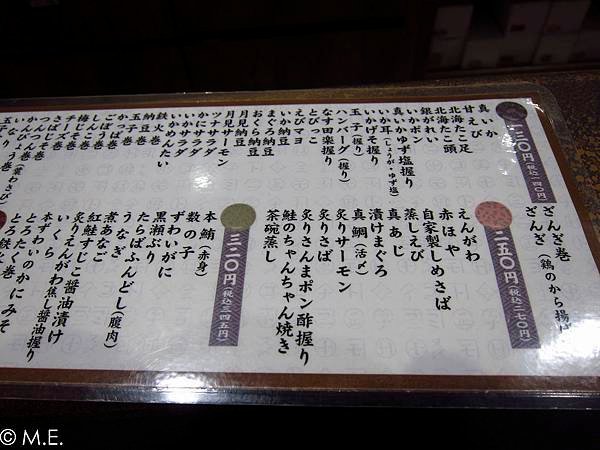 一三〇円(税込一四〇円)
真いか
甘えび
北海たこ足
北海たこ頭
銀がれい
いかポン
真いかゆず塩握り
いか耳(しょうが・ゆず塩)
いかげそ握り
玉子(握り)
ハンバーグ(握り)
なす田楽握り
とびっこ
えびマヨ
いか納豆
まぐろ納豆
おくら納豆
月見納豆
月見サーモン
ツナサラダ
かにサラダ
いかサラダ
いかめんたい
鉄火巻
納豆巻
玉子巻
かっぱ巻
ごぼう巻
しんこ巻
梅しそ巻
チーズ巻
つなしそ巻
かんぴょう巻
いなり
玉子
ざんぎ巻
ざんぎ(鶏のから揚げ
二五〇円(税込二七〇円)
えんがわ
赤ほや
自家製しめさば
蒸しえび
真あじ
漬けまぐろ
真鯛(活〆)
炙りサーモン
炙りさば
炙りさんまポン酢握り
鮭のちゃんちゃん焼き
茶碗蒸し
三二〇円(税込三四五円)
本鮪(赤身)
数の子
ずわいがに
黒瀬ぶり
たらばふんどし(腹肉)
うなぎ
煮あなご
紅鮭すじこ醤油漬け
炙りえんがわ焦し醤油握り
いくら
本ずわいのかにみそ
とろたく巻
とろ鉄火
© M.E.